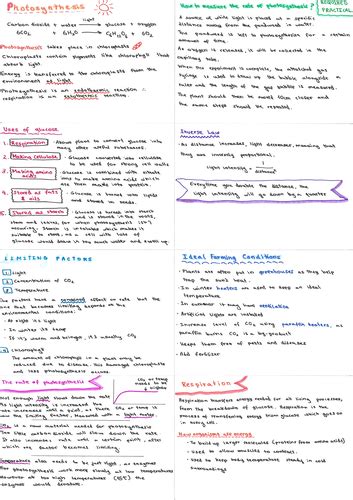 Photosynthesis
light
Carbon dioxide + water → glucose + oxygen
6CO₂ + 6H₂O C₆H₁₂O₆ + 6O₂
Photosynthesis takes place in chloroplasts
Chloroplasts contain pigments like chlorophyll that
absorb light
Energy is transferred to the chloroplasts from the
environment as light.
Photosynthesis is an endothermic reaction
respiration is an exothermic reaction
How to measure the rate of photosynthesis?
REQUIRED
PRACTICAL
A source of white light is placed at a specific
distance away from the pondweed in water.
The pondweed is left to photosynthesise for a certain
amount of time
As oxygen is released, it will be collected in the
capillary tube.
When the experiment is complete, the attached gas
syringe is used to draw up the bubble alongside
ruler and the length of the gas bubble is measured.
The plant should then be moved 10cm closer and
the above steps should be repeated.
Uses of glucose
1. Respiration - Allows plants to convert glucose into
many other useful substances.
2. Making cellulose - Glucose converted into cellulose
to be used for strong cell walls
3. Making amino acids - Glucose is combined with nitrate
ions to make amino acids which
are then made into protein.
4. Stored as fats & oils - Glucose is turned into lipids
and stored in seeds.
5. Stored as starch - Glucose is turned into starch
and is stored in the roots,
stem and leaves, for when photosynthesis isn't
occurring. Starch is insoluble which makes it
suitable to store, as a cell with lots of
glucose would draw in too much water and swell up.
Inverse Law
As distance increases, light decreases, meaning that
they are inversely proportional.
light intensity = 1
distance²
Everytime you double the distance, the
light intensity will go down by a quarter
LIMITING FACTORS
1. Light
2. Concentration of CO₂
3. Temperature
The factors have a combined effect on rate but the
one that becomes limiting depends on the
environmental conditions:
- At night its light
- In winter its temp
- If it's warm and bright, it's usually CO₂
4. Chlorophyll
The amount of chlorophyll in a plant may be
reduced due to disease. This damages chloroplasts
and less photosynthesis occurs
Ideal Farming Conditions
Plants are often put in greenhouses as they help
trap the sun's heat.
In winter heaters are used to keep an ideal
temperature
In summer it may have ventilation
Artificial lights are included
Increase level of CO₂ using paraffin heaters, as
paraffin burns CO₂ is a by-product
Keeps them free of pests and diseases
Add fertiliser
The rate of photosynthesis
Not enough light slows down the rate
As light intensity is increased, the
rate increases until a point, as there CO₂ or temp is
now the limiting factor. Measured with a light meter.
CO₂ or temp
needs to be
higher
CO₂ is a raw material needed for photosynthesis
Too little would decrease will slow down the rate
It also increases rate until a certain point, after
which any factor becomes limiting
Temperature also needs to be just right, as enzymes
for photosynthesis work more slowly at low temperatures
However at too high temperatures (45°C) the
enzymes would denature.
Respiration
Respiration transfers energy needed for all living processes,
from the breakdown of glucose. Respiration is the
process of transferring energy from glucose which goes on
in every cell.
How organisms use energy
- To build up larger molecules (proteins from amino acids)
- Used to allow muscles to contract.
- Used to keep body temperature steady in cold
surroundings